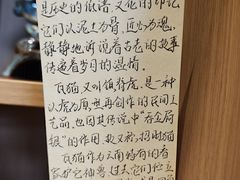 是历史的低语，文化的印记
它们以泥土为骨，匠心为魂
静静地诉说着古老的故事
传递着岁月的温情。
瓦猫又叫镇脊虎，是一种
以虎为原型再创作的民间工
艺品，也因其传说中“吞金屙
银”的作用，故又称：招财猫
瓦猫作为云南特有的
家护它神兽，过去它们伫立